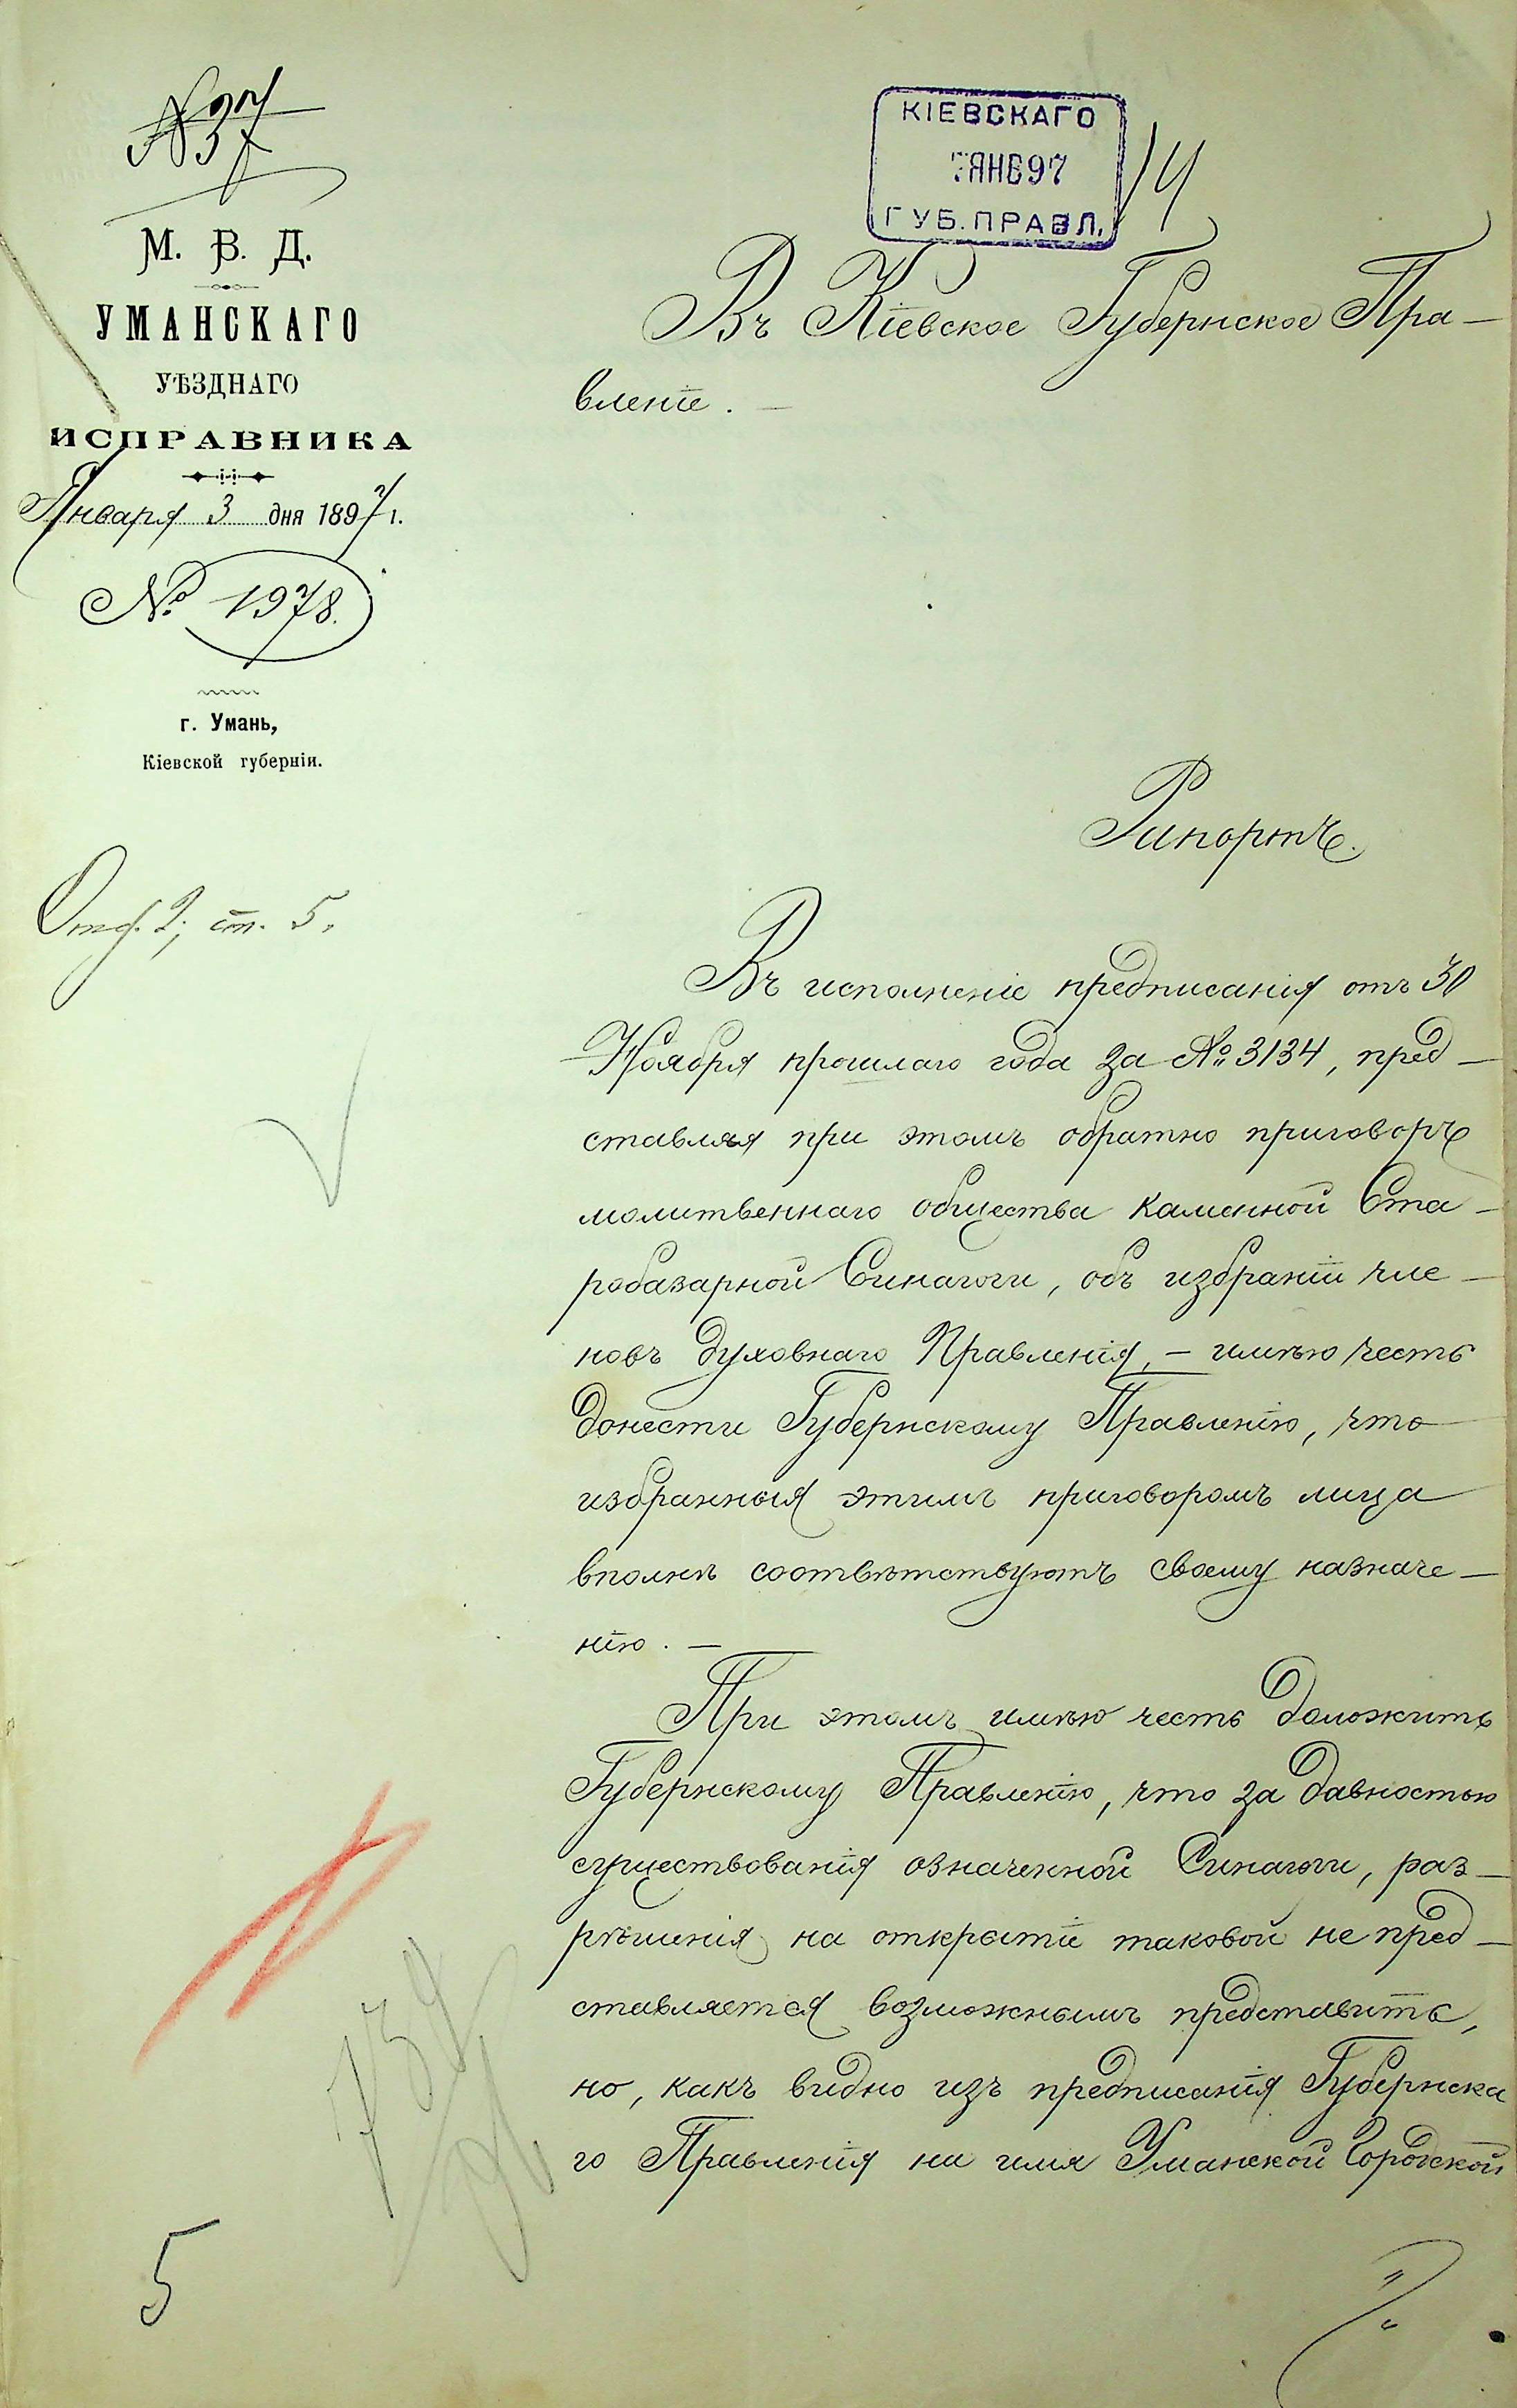 № 37
КІЕВСКАГО
7 ЯНВ 97
ГУБ. ПРАВЛ.
14
М. В. Д.
УМАНСКАГО
УѢЗДНАГО
ИСПРАВНИКА
Января 3 дня 1897 г.
№ 1978.
г. Умань,
Кіевской губерніи.
Въ Кіевское Губернское Пра-
вленіе. —
Рапортъ.
Отд. 2, ст. 5.
Въ исполненіе предписанія отъ 30
Ноября прошлаго года за № 3134, пред-
ставляя при этомъ обратно приговоръ
молитвеннаго общества каменной Ста-
робазарной Синагоги, объ избраніи чле-
новъ Духовнаго Правленія, — имѣю честь
донести Губернскому Правленію, что
избранныя этимъ приговоромъ лица
вполнѣ соотвѣтствуютъ своему назначе-
нію. —
При этомъ имѣю честь доложить
Губернскому Правленію, что за давностью
существованія означенной Синагоги, раз-
рѣшенія на открытіе таковой не пред-
ставляется возможнымъ представить,
но, какъ видно изъ предписанія Губернска
го Правленія на имя Уманской Городской
5